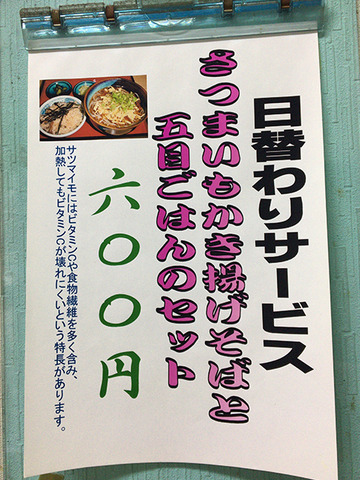 日替わりサービス
さつまいもかき揚げそばと
五目ごはんのセット
六〇〇円
サツマイモにはビタミンCや食物繊維を多く含み、
加熱してもビタミンCが壊れにくいという特長があります。